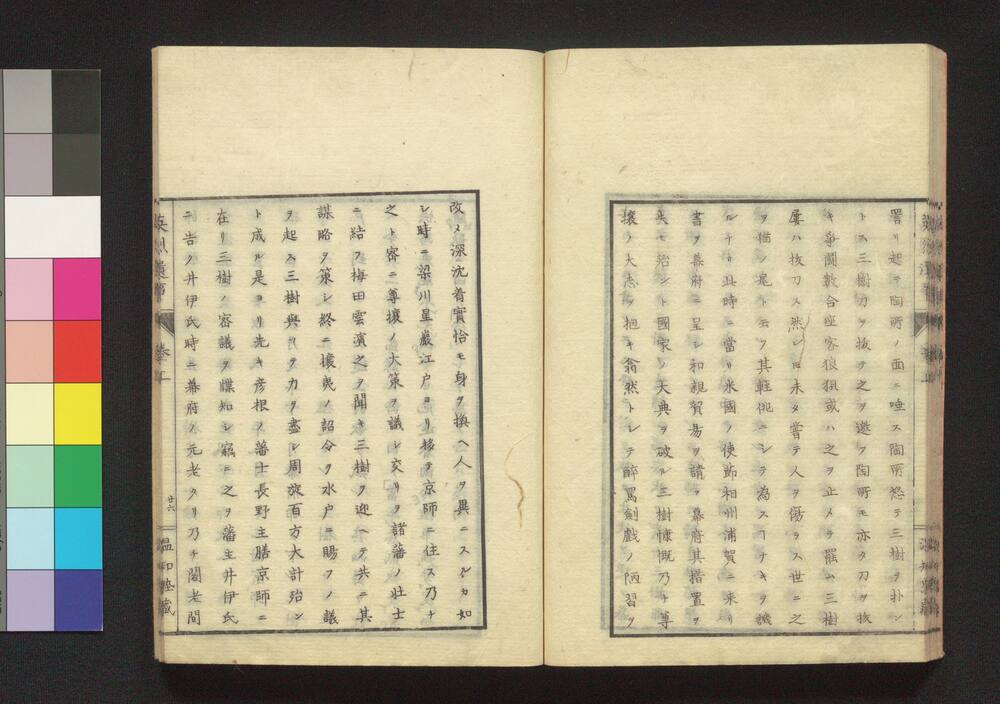 詈リ起テ陶所ノ面ニ唾ス陶所怒テ三樹ヲ扑ン
トス三樹刀ヲ抜テ之ヲ邀フ陶所モ亦タ刀ヲ抜
キ爭鬪數合座客狼狽或ハ之ヲ止メテ罷ム三樹
屢ハ抜刀ス然レ𪜈未タ嘗テ人ヲ傷ラス世ニ之
ヲ猫ノ鬼ト云フ其輕佻ニシテ為スヿナキヲ譏
ルナリ此時ニ當リ米國ノ使節相州浦賀ニ来リ
書ヲ幕府ニ呈シ和親貿易ヲ請フ幕府其措置ヲ
失ヒ殆ント國家ノ大典ヲ破ル三樹慷慨乃チ尊
攘ノ大志ヲ抱キ翕然トシテ醉罵劍戲ノ陋習ヲ
改メ深沈着實恰モ身ヲ換ヘ人ヲ異ニスルカ如
シ時ニ梁川星巖江戸ヨリ移テ京師ニ住ス乃チ
之ト密ニ尊攘ノ大策ヲ議シ交リヲ諸藩ノ壮士
ニ結フ梅田雲濱之ヲ聞キ三樹ヲ迎ヘテ共ニ其
謀略ヲ策シ終ニ攘夷ノ詔令ヲ水戸ニ賜フノ議
ヲ起ス三樹與リテ力ヲ盡シ周旋百方大計殆ン
ト成ル是ヨリ先キ彦根ノ藩士長野主膳京師ニ
在リ三樹ノ密議ヲ諜知シ竊ニ之ヲ藩主井伊氏
ニ告ク井伊氏時ニ幕府ノ元老タリ乃チ閣老間
廿六
温知塾藏